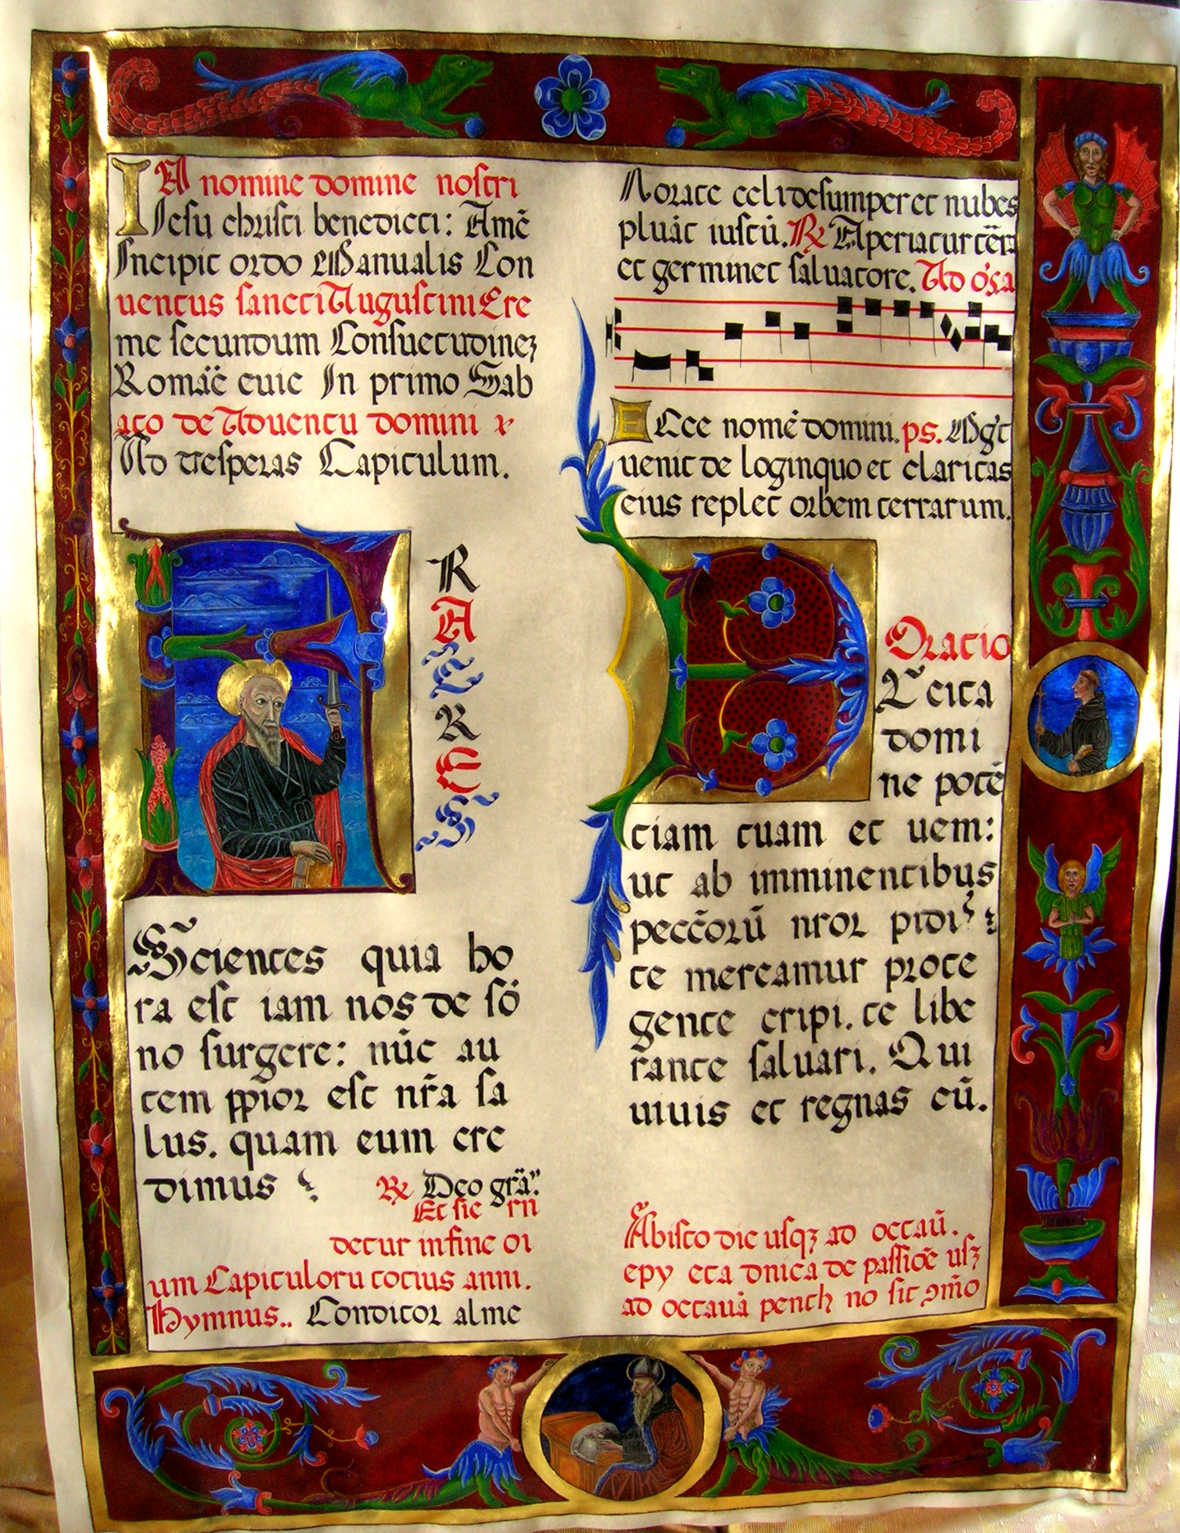 IA nomine domine nostri
Jesu christi benedicti: Amē
Incipit ordo Manualis Con
uentus sancti Augustini Ere
me secundum Consuetudinez
Romāe cuie In primo Sab
ato de Aduentu domini
Ad vesperas Capitulum.
FRATRES
Scientes quia ho
ra est iam nos de sō
no surgere: nūc au
tem ppior est nr̄a sa
lus. quam cum cre
dimus
R Deo grā.
Et sic
detur infine oi
um Capituloru totius anni.
Hymnus.. Conditor alme
Rorate celi desumper et nubes
pluāt iustū. R Aperiatur tēr
et germinet saluatore. Ad
Ecce nomē domini. ps.
uenit de loginquo et claritas
eius replet orbem terrarum.
Oratio
Excita
domi
ne potē
tiam tuam et uem:
ut ab imminentibus
peccōrū nror
te mereamur prote
gente eripi. te libe
rante saluari. Qui
uiuis et regnas cū.
Ab isto die usqz ad octaū.
epy eta dnica de passiōe usz
ad octauā no sit